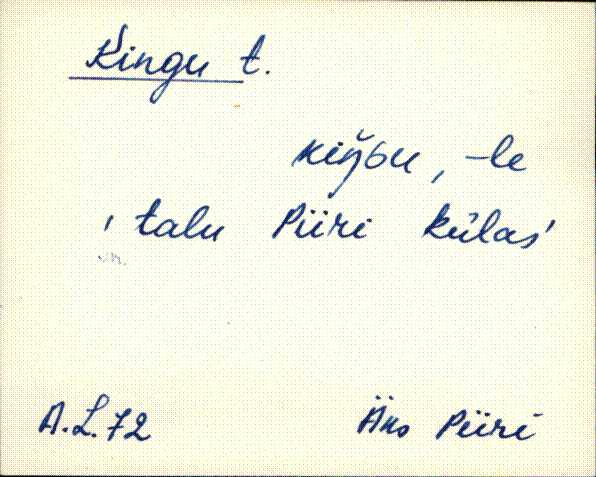 Kingu t.
kiŋ̆ɢu, -le
' talu Piiri külas'
A.L. 72 Äks Piiri